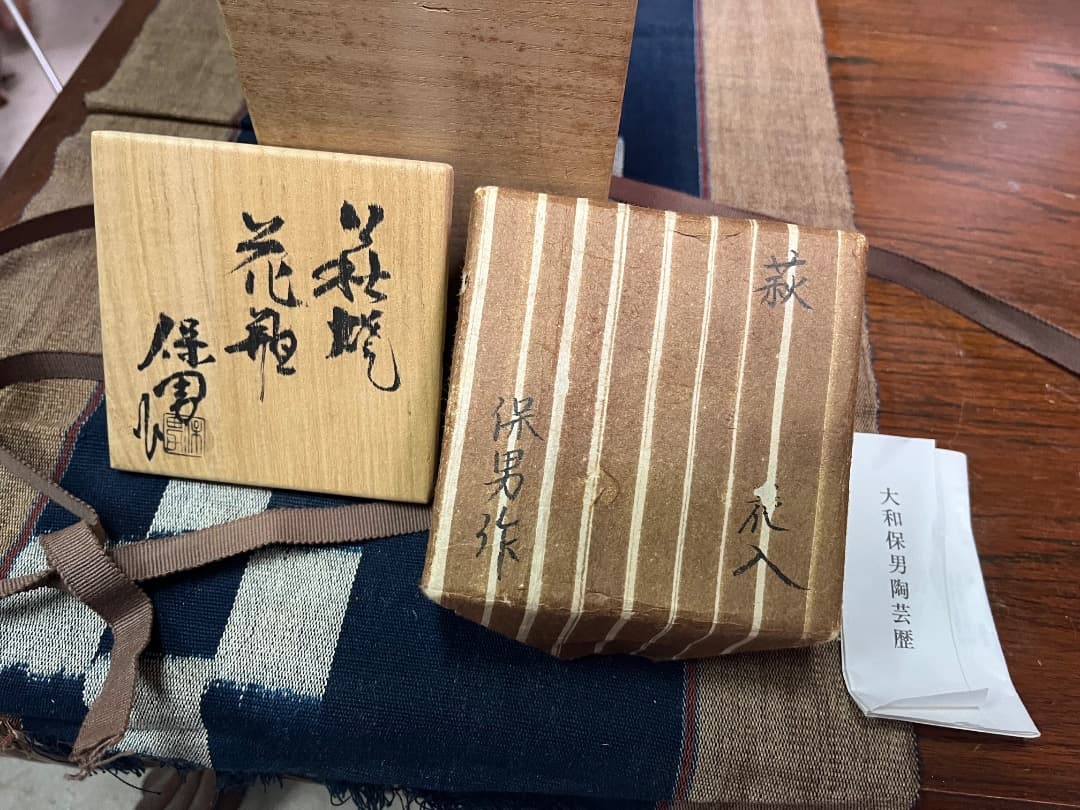 萩焼
花瓶
保男作
萩
花入
保男作
大和保男陶芸歴